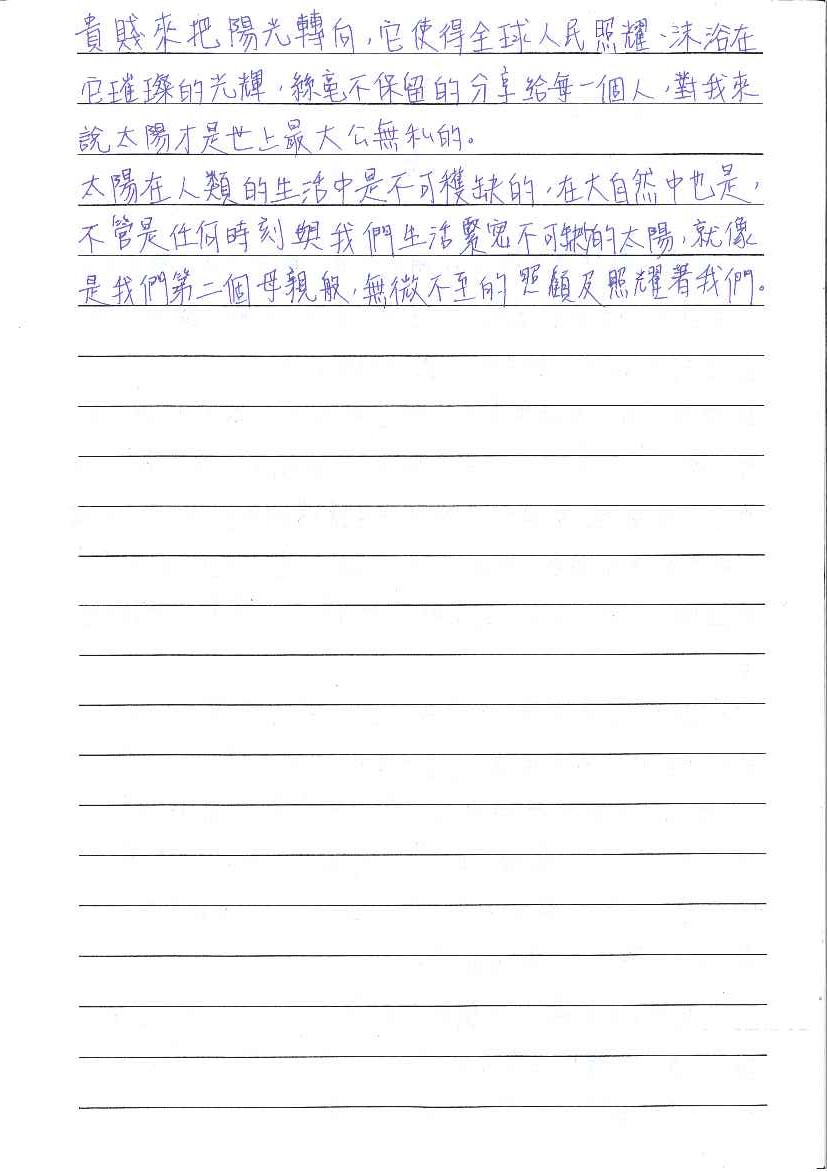 貴賤來把陽光轉向，它使得全球人民照耀、沫浴在
它璀璨的光輝，絲毫不保留的分享給每一個人，對我來
說太陽才是世上最大公無私的。
太陽在人類的生活中是不可穫缺的，在大自然中也是，
不管是任何時刻與我們生活緊密不可缺的太陽，就像
是我們第二個母親般，無微不至的照顧及照耀著我們。